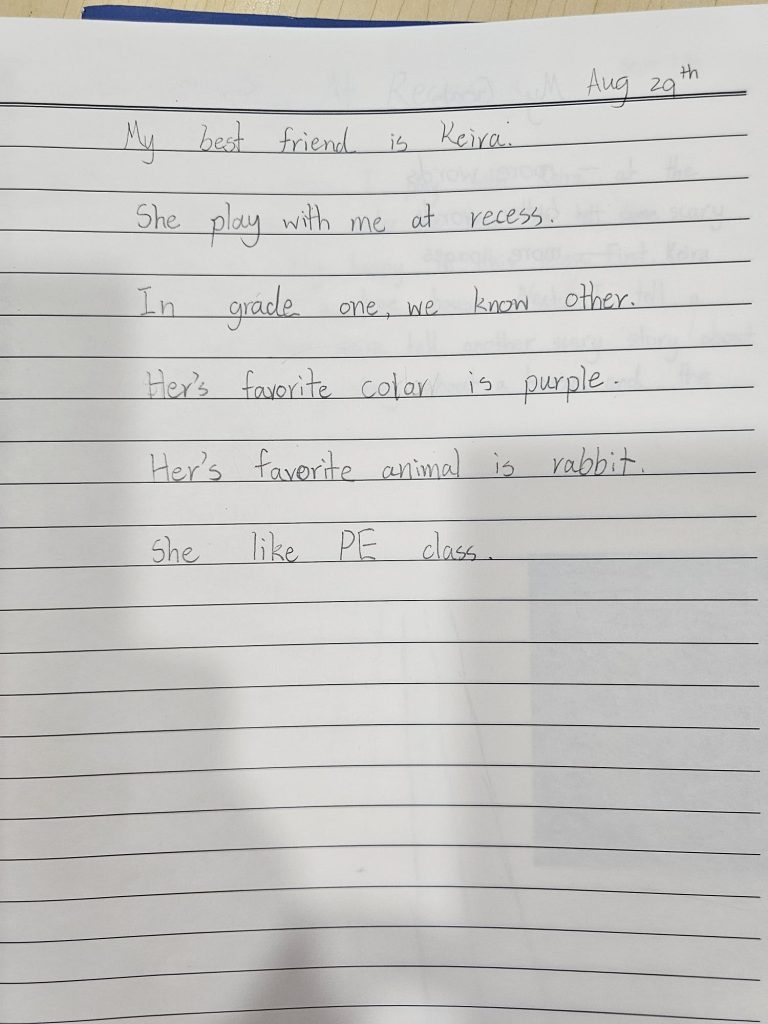 Aug 29th
My best friend is Keira.
She play with me at recess.
In grade one, we know other.
Her's favorite color is purple.
Her's favorite animal is rabbit.
She like PE class.